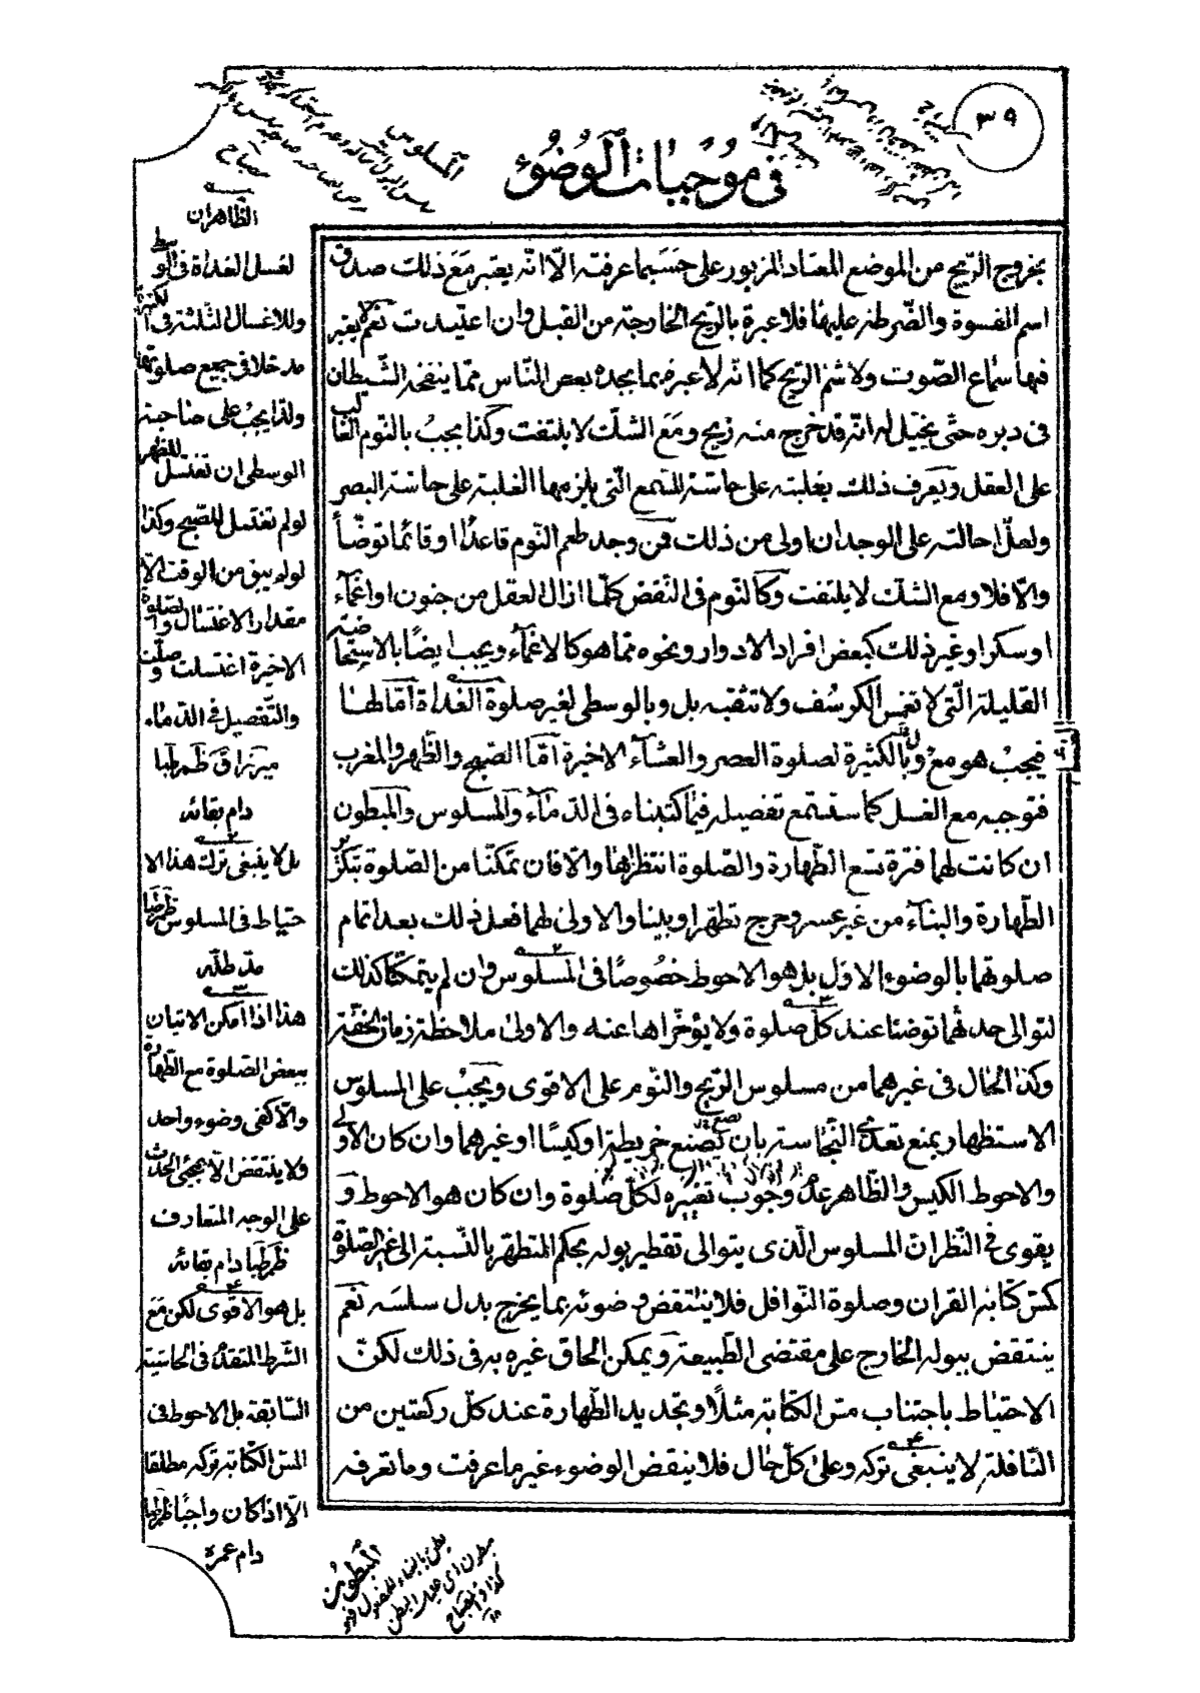 ٣٩
في موجبات الوضوء
بخروج الريح من الموضع المعتاد المزبور على حسبما عرفته الّا انّه يعتبر مع ذلك صدق
اسم الفسوة والضّرطة عليها فلا عبرة بالريح الخارجة من القبل وان اعتيدت نعم لا يعتبر
فيها سماع الصّوت ولا شم الريح كما انّه لا عبرة بما يجده بعض النّاس ممّا ينفخه الشّيطان
في دبره حتّى يخيّل له انّه قد خرج منه ريح ومع الشكّ لا يلتفت وكذا يجب بالنّوم الغالب
على العقل ويعرف ذلك بغلبته على حاسّة السّمع الّتي يلزمها الغلبة على حاسّة البصر
ولعلّ احالته على الوجدان اولى من ذلك فمن وجد طعم النّوم قاعدًا او قائمًا توضّأ
والّا فلا ومع الشكّ لا يلتفت وكالنّوم في النّقض كلّما ازال العقل من جنون او اغماء
او سكر او غير ذلك كبعض افراد الادوار ونحوه ممّا هو كالاغماء ويجب ايضًا بالاستحاضة
القليلة الّتي لا تغمس الكرسف ولا تثقبه بل وبالوسطى لغير صلوة الغداة امّا لها
فيجب هو معه وبالكثيرة لصلوة العصر والعشاء الاخيرة امّا الصّبح والظّهر والمغرب
فتوجبه مع الغسل كما ستسمع تفصيله فيما كتبناه في الدّماء والمسلوس والمبطون
ان كانت لهما فترة تسع الطّهارة والصّلوة انتظراها والّا فان تمكّنا من الصّلوة بتكرّر
الطّهارة والبناء من غير عسر وحرج تطهّرا وبنيا والاولى لهما فعل ذلك بعد اتمام
صلوتهما بالوضوء الاوّل بل هو الاحوط خصوصًا في المسلوس وان لم يتمكّنا كذلك
لتوالي حدثهما توضئا عند كلّ صلوة ولا يؤخّراها عنه والاولى ملاحظة زمان الخفّة
وكذا الحال في غيرهما من مسلوس الريح والنّوم على الاقوى ويجب على المسلوس
الاستظهار بمنع تعدّي النّجاسة بان يصنع خريطة او كيسًا او غيرهما وان كان الاولى
والاحوط الكيس والظّاهر عدم وجوب تغييره لكلّ صلوة وان كان هو الاحوط و
يقوى في النّظر انّ المسلوس الّذي يتوالى تقطير بوله بحكم المتطهّر بالنّسبة الى غير الصّلوة
كمسّ كتابة القران وصلوة النّوافل فلا ينتقض وضوئه بما يخرج بدل سلسه نعم
ينتقض ببوله الخارج على مقتضى الطّبيعة ويمكن الحاق غيره به في ذلك لكنّ
الاحتياط باجتناب مسّ الكتابة مثلًا وتجديد الطّهارة عند كلّ ركعتين من
النّافلة لا ينبغي تركه وعلى كلّ حال فلا ينقض الوضوء غير ما عرفت وما تعرفه
الظاهر ان
لغسل الغداة في الوسطى
وللاغسال الثلثة في الكثيرة
مدخلا في جميع صلوتها
ولذا يجب على صاحبة
الوسطى ان تغتسل للظهر
لو لم تغتسل للصبح وكذا
لو لم يبق من الوقت الّا
مقدار الاغتسال والصلوة
الاخيرة اغتسلت وصلّت
والتّفصيل في الدّماء
ميرزاى
دام بقائه
بل لا ينبغي ترك هذا الا
حتياط في المسلوس
مد ظلّه
هذا اذا امكن الاتيان
ببعض الصّلوة مع الطّهارة
والّا كفى وضوء واحد
ولا ينتقض الّا بمجيئ الحدث
على الوجه المتعارف
دام بقائه
بل هو الاقوى لكن مع
الشرط المتقدّم في الحاشية
السّابقة بل الاحوط في
المسّ الكتابة تركه مطلقا
الّا اذا كان واجبًا
دام عمره
المسلوس
مصباح
المبطون
كذا في المصباح